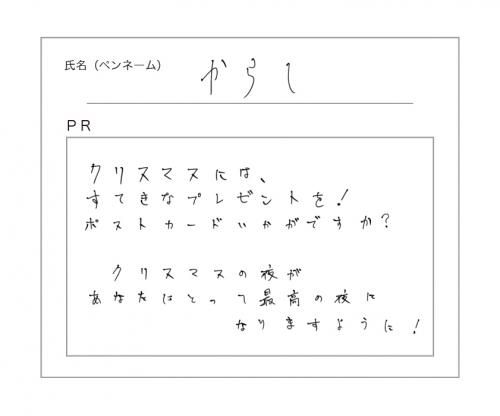 氏名(ペンネーム)
からし
PR
クリスマスには、
すてきなプレゼントを!
ポストカードいかがですか?
クリスマスの夜が
あなたにとって最高の夜に
なりますように!